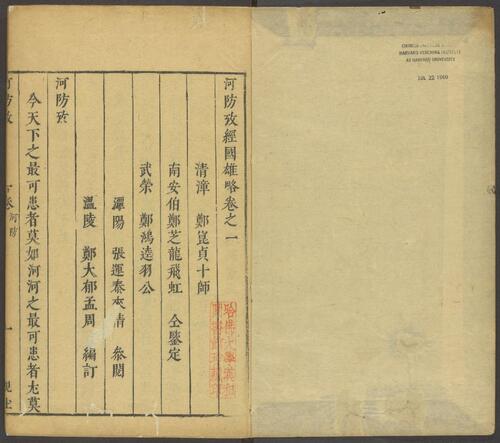 河防攷經國雄略卷之一
清漳　鄭崑貞十師
南安伯鄭芝龍飛虹　仝鑒定
武榮　鄭鴻逵羽公
潭陽　張運泰來倩　參閱
溫陵　鄭大郁孟周　編訂
河防攷
今天下之最可患者莫如河河之最可患者尤莫
河防攷
河防
一
觀社
HARVARD-YENCHING INSTITUTE
AT HARVARD UNIVERSITY
JUL 22 1960